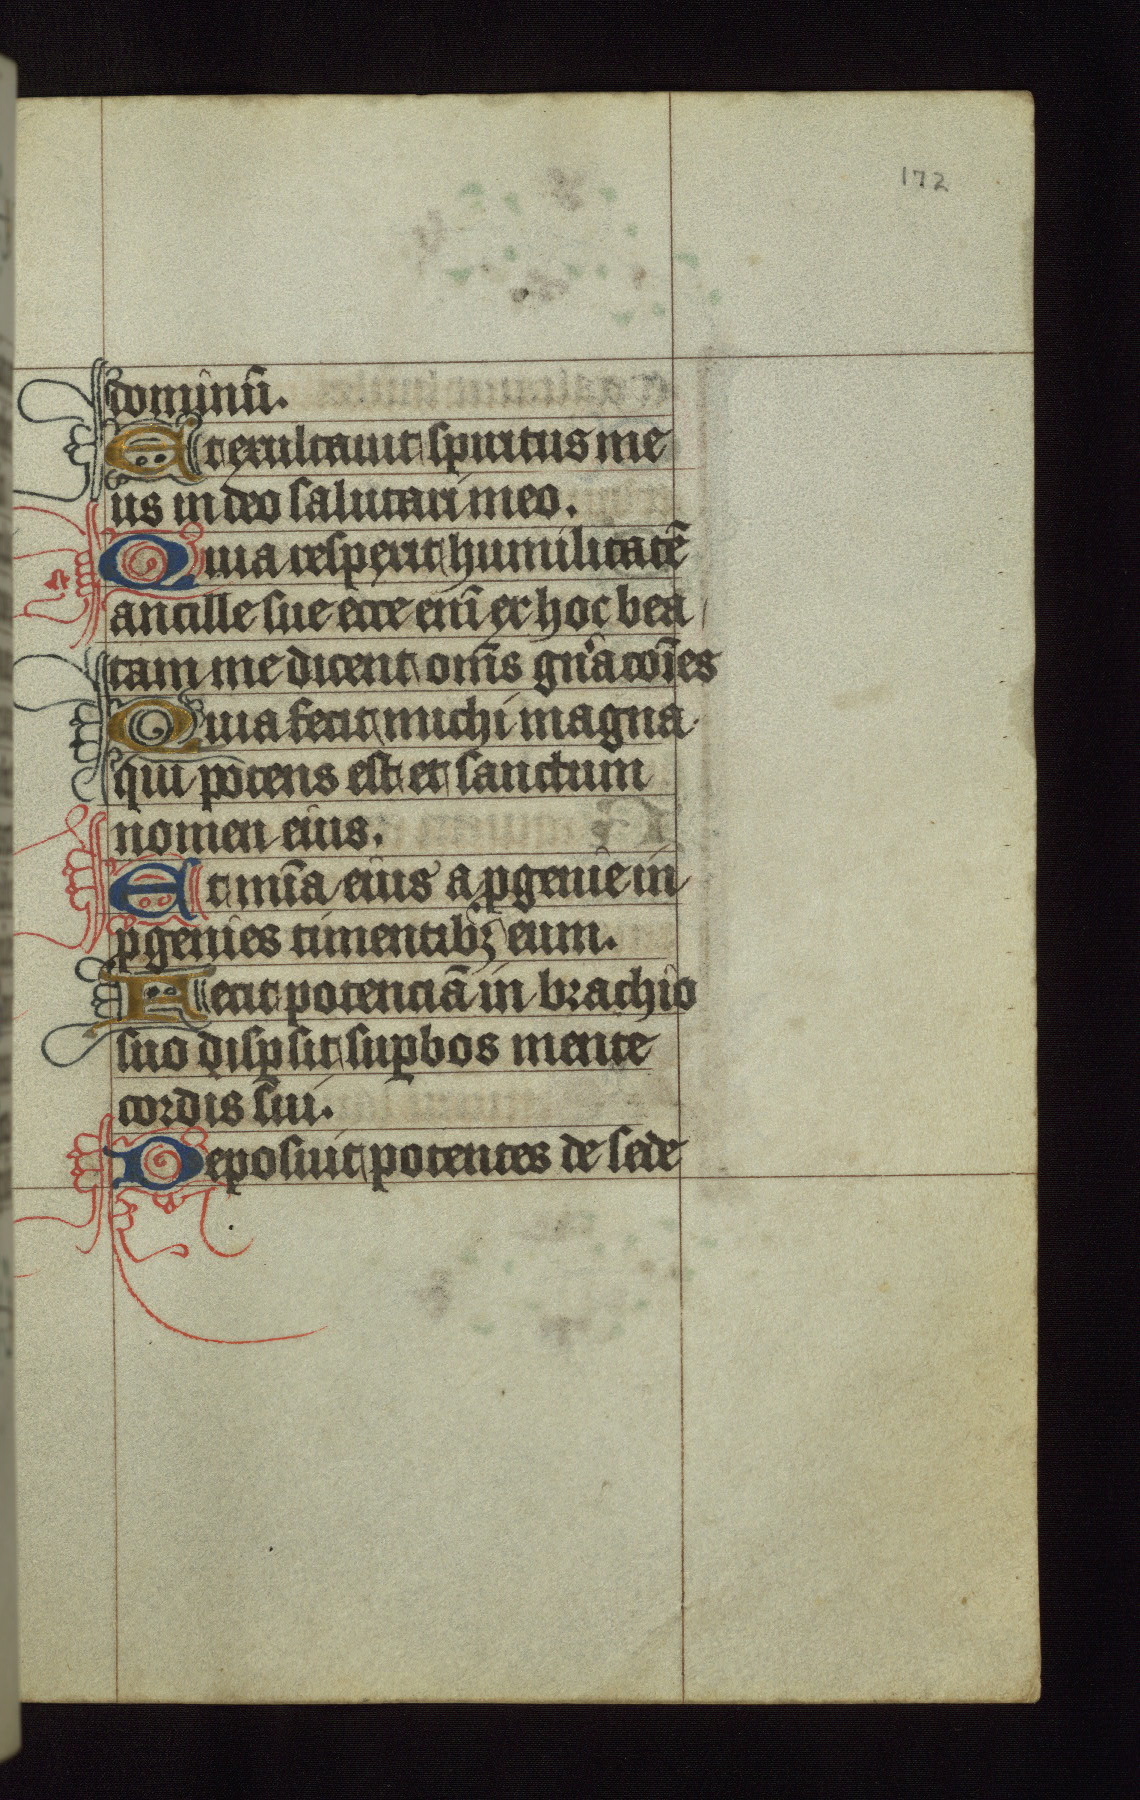 172
dominū.
Et exultauit spiritus me
us in deo salutari meo.
Quia respexit humilitatē
ancille sue ecce enī ex hoc bea
tam me dicent om̄s gn̄acōes
Quia fecit michi magna
qui potens est et sanctum
nomen eius.
Et mīa eius a ꝓgenie in
ꝓgenies timentibꝫ eum.
Fecit potenciā in brachio
suo dispsit suꝑbos mente
cordis sui.
Deposuit potentes de sede